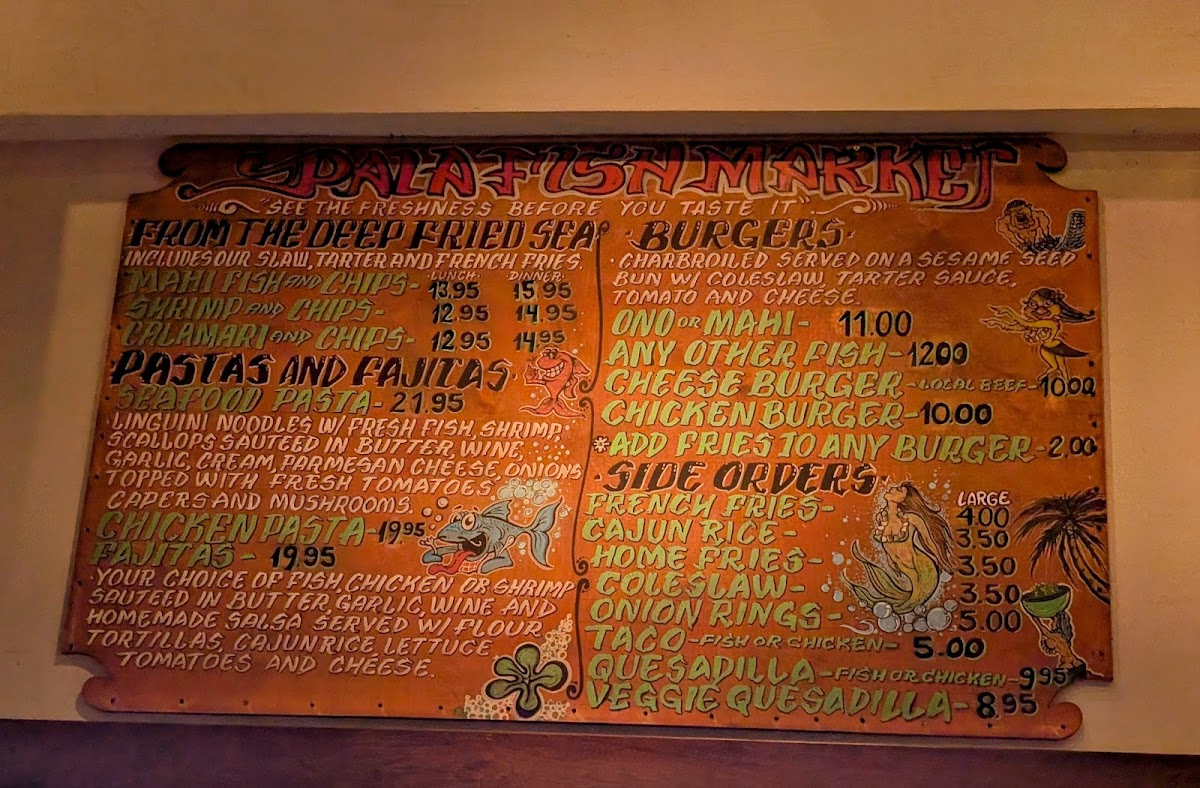 PAIA FISH MARKET
"SEE THE FRESHNESS BEFORE YOU TASTE IT"
FROM THE DEEP FRIED SEA
INCLUDES OUR SLAW, TARTER AND FRENCH FRIES.
LUNCH DINNER
MAHI FISH AND CHIPS- 13.95 15.95
SHRIMP AND CHIPS- 12.95 14.95
CALAMARI AND CHIPS- 12.95 14.95
PASTAS AND FAJITAS
SEAFOOD PASTA- 21.95
LINGUINI NOODLES W/ FRESH FISH, SHRIMP,
SCALLOPS SAUTEED IN BUTTER, WINE,
GARLIC, CREAM, PARMESAN CHEESE, ONIONS
TOPPED WITH FRESH TOMATOES,
CAPERS AND MUSHROOMS.
CHICKEN PASTA-19.95
FAJITAS- 19.95
·YOUR CHOICE OF FISH, CHICKEN OR SHRIMP
SAUTEED IN BUTTER, GARLIC, WINE AND
HOMEMADE SALSA SERVED W/ FLOUR
TORTILLAS, CAJUN RICE, LETTUCE
TOMATOES AND CHEESE.
·BURGERS·
·CHARBROILED SERVED ON A SESAME SEED
BUN W/ COLESLAW, TARTER SAUCE,
TOMATO AND CHEESE.
ONO OR MAHI- 11.00
ANY OTHER FISH-12.00
CHEESE BURGER-LOCAL BEEF-10.00
CHICKEN BURGER-10.00
*ADD FRIES TO ANY BURGER-2.00
·SIDE ORDERS·
LARGE
FRENCH FRIES- 4.00
CAJUN RICE- 3.50
HOME FRIES- 3.50
COLESLAW- 3.50
ONION RINGS- 5.00
TACO-FISH OR CHICKEN- 5.00
QUESADILLA-FISH OR CHICKEN-9.95
VEGGIE QUESADILLA-8.95